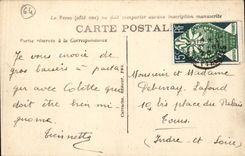 64
Le Verso (côté vue) ne doit comporter aucune inscription manuscrite
CARTE POSTALE
Partie réservée à la Correspondance
Je vous envoie de
gros baisers à partager
avec Colette qui
doit être bien mignonne
Monsieur et Madame
Lafond
10 bis place du Palais
Tours
(Indre et Loire)
15